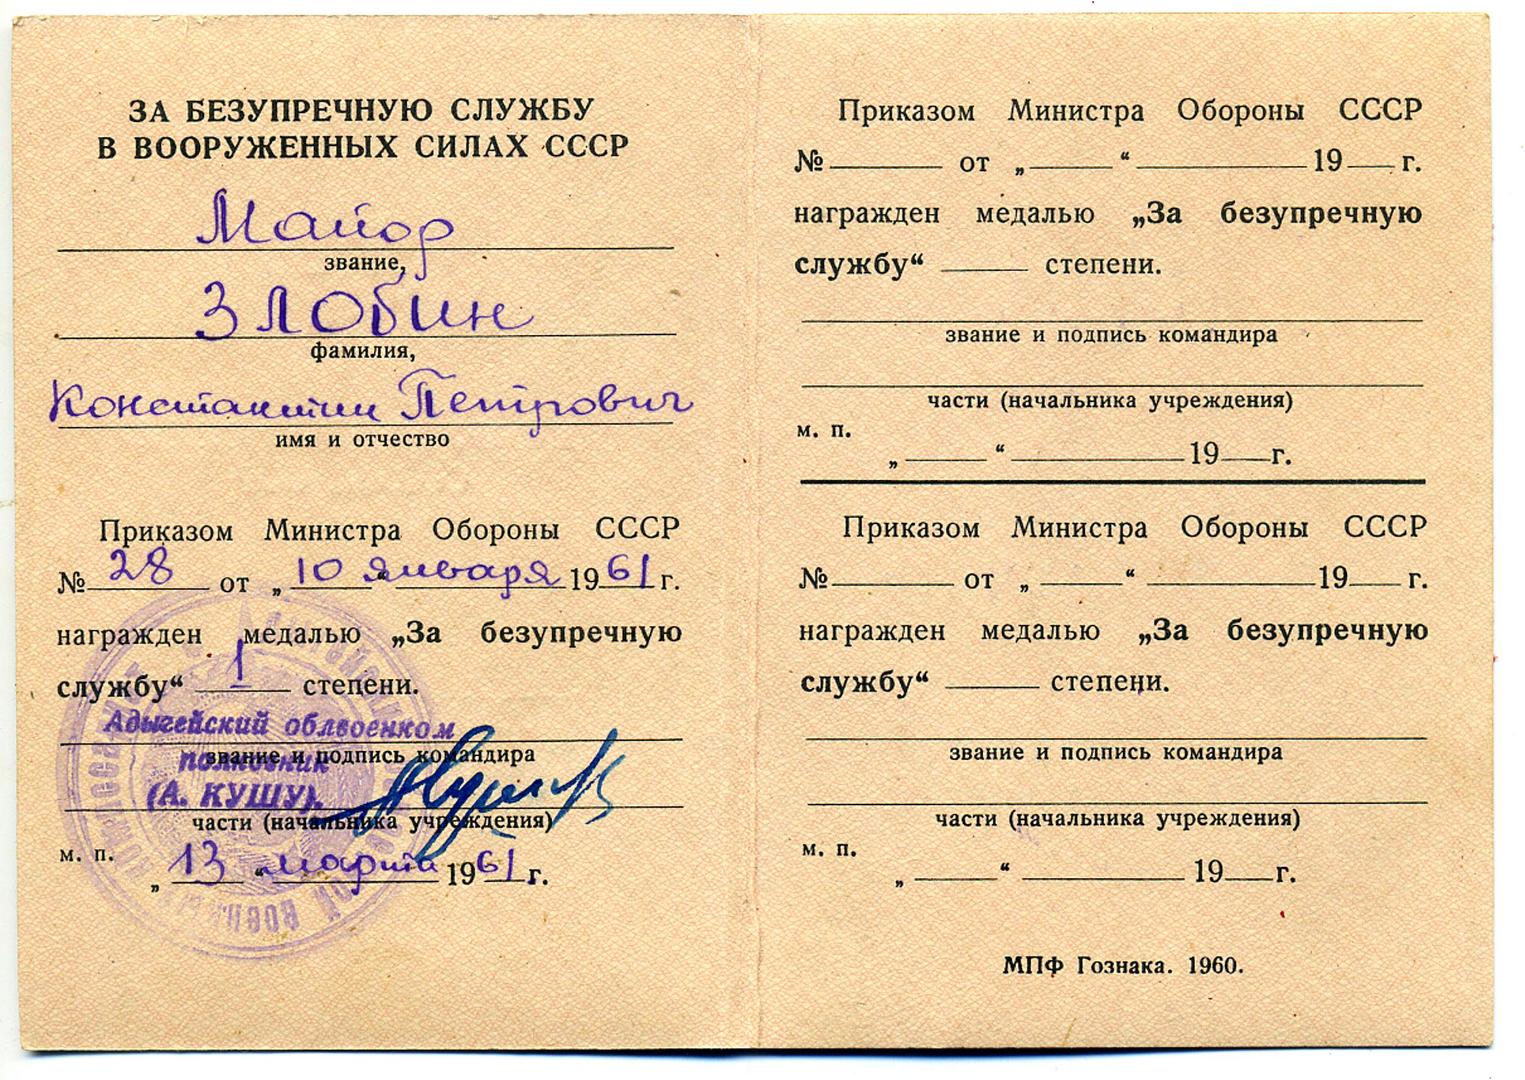 ЗА БЕЗУПРЕЧНУЮ СЛУЖБУ
В ВООРУЖЕННЫХ СИЛАХ СССР
Майор
звание,
Злобин
фамилия,
Константин Петрович
имя и отчество
Приказом Министра Обороны СССР
№ 28 от „10“ января 1961 г.
награжден медалью „За безупречную
службу“ 1 степени.
Адыгейский облвоенком
звание и подпись командира
полковник
(А. КУШУ).
части (начальника учреждения)
м. п.
„13“ марта 1961 г.
Приказом Министра Обороны СССР
№ от „ “ 19 г.
награжден медалью „За безупречную
службу“ степени.
звание и подпись командира
части (начальника учреждения)
м. п.
„ “ 19 г.
Приказом Министра Обороны СССР
№ от „ “ 19 г.
награжден медалью „За безупречную
службу“ степени.
звание и подпись командира
части (начальника учреждения)
м. п.
„ “ 19 г.
МПФ Гознака. 1960.